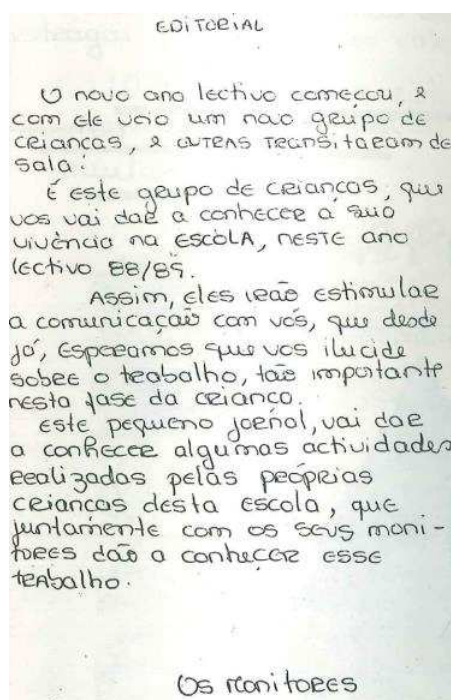 EDITORIAL
O novo ano lectivo começou, e
com ele veio um novo grupo de
crianças, e outras transitaram de
sala.
É este grupo de crianças, que
vos vai dar a conhecer a sua
vivência na escola, neste ano
lectivo 88/89.
Assim, eles irão estimular
a comunicação com vós, que desde
já, esperamos que vos ilucide
sobre o trabalho, tão importante
nesta fase da criança.
Este pequeno jornal, vai dar
a conhecer algumas actividades
realizadas pelas próprias
crianças desta escola, que
juntamente com os seus moni-
tores dão a conhecer esse
trabalho.
Os monitores